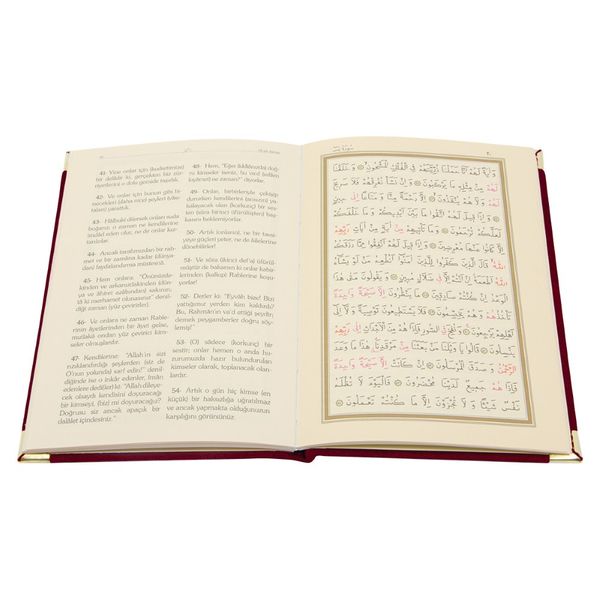 41- Yine onlar için (kudretimize)
bir delildir ki, gerçekten biz zür-
riyetlerini o dolu gemide taşıdık.
42- Ve onlar için bunun gibi bi-
necekleri (daha nice) şeyleri (vâsı-
taları) yarattık.
43- Hâlbuki dilersek onları suda
boğarız; o zaman ne kendilerine
imdâd eden olur, ne de onlar kur-
tarılırlar.
44- Ancak tarafımızdan bir rah-
met ve bir zamâna kadar (dünya-
dan) faydalandırma müstesnâ.
45- Hem onlara: "Önünüzde-
kinden ve arkanızdakinden (dün-
ya ve âhiret azâbından) sakının;
tâ ki merhamet olunasınız" denil-
diği zaman (yüz çevirirler).
46- Ve onlara ne zaman Rable-
rinin âyetlerinden bir âyet gelse,
mutlaka ondan yüz çeviren kim-
seler olmuşlardır.
47- Kendilerine: "Allah'ın sizi
rızıklandırdığı şeylerden (siz de
O'nun yolunda) sarf edin!" denil-
diğinde ise o inkâr edenler, îmân
edenlere dediler ki: "Allah dileye-
cek olsaydı kendisini doyuracağı
bir kimseyi, (biz) mi doyuracağız?
Doğrusu siz ancak apaçık bir
dalâlet içindesiniz."
48- Hem, "Eğer (iddiânızda) doğ-
ru kimseler iseniz, bu vaad (edilen
azab) ne zaman?" diyorlar.
49- Onlar, birbirleriyle çekişip
dururlarken kendilerini (ansızın) ya-
kalayacak olan (korkunç) bir ses-
ten (sûra birinci üfürülüşten) baş-
kasını beklemiyorlar.
50- Artık (onlar) ne bir tavsi-
yeye güçleri yeter, ne de âilelerine
dönebilirler!
51- Ve sûra (ikinci def'a) üfürül-
müştür de bakarsın ki onlar kabir-
lerinden (kalkıp) Rablerine koşu-
yorlar.
52- Derler ki: "Eyvâh bize! Bizi
yattığımız yerden kim kaldırdı?
Bu, Rahmân'ın va'd ettiği şeydir;
demek peygamberler doğru söyle-
miş!"
53- (O) sâdece (korkunç) bir
sestir; onlar hemen o anda hu-
zûrumuzda hazır bulundurulan
kimseler olarak, toplanacak olan-
lardır.
54- Artık o gün hiç kimse (en
küçük) bir haksızlığa uğratılmaz
ve ancak yapmakta olduğunuzun
karşılığını görürsünüz.
وَاٰيَةٌ لَهُمْ اَنَّا حَمَلْنَا ذُرِّيَّتَهُمْ فِي الْفُلْكِ الْمَشْحُونِ وَخَلَقْنَا
لَهُمْ مِنْ مِثْلِهِ مَا يَرْكَبُونَ وَاِنْ نَشَأْ نُغْرِقْهُمْ فَلَا صَرِيخَ
لَهُمْ وَلَا هُمْ يُنْقَذُونَ اِلَّا رَحْمَةً مِنَّا وَمَتَاعًا اِلٰى
حِينٍ وَاِذَا قِيلَ لَهُمُ اتَّقُوا مَا بَيْنَ اَيْدِيكُمْ وَمَا خَلْفَكُمْ
لَعَلَّكُمْ تُرْحَمُونَ وَمَا تَأْتِيهِمْ مِنْ اٰيَةٍ مِنْ اٰيَاتِ رَبِّهِمْ
اِلَّا كَانُوا عَنْهَا مُعْرِضِينَ وَاِذَا قِيلَ لَهُمْ اَنْفِقُوا مِمَّا رَزَقَكُمُ
اللّٰهُ قَالَ الَّذِينَ كَفَرُوا لِلَّذِينَ اٰمَنُوا اَنُطْعِمُ مَنْ لَوْ يَشَاءُ
اللّٰهُ اَطْعَمَهُ اِنْ اَنْتُمْ اِلَّا فِي ضَلَالٍ مُبِينٍ وَيَقُولُونَ مَتٰى هٰذَا
الْوَعْدُ اِنْ كُنْتُمْ صَادِقِينَ مَا يَنْظُرُونَ اِلَّا صَيْحَةً وَاحِدَةً
تَأْخُذُهُمْ وَهُمْ يَخِصِّمُونَ فَلَا يَسْتَطِيعُونَ تَوْصِيَةً وَلَا اِلٰى
اَهْلِهِمْ يَرْجِعُونَ وَنُفِخَ فِي الصُّورِ فَاِذَا هُمْ مِنَ الْاَجْدَاثِ اِلٰى رَبِّهِمْ
يَنْسِلُونَ قَالُوا يَا وَيْلَنَا مَنْ بَعَثَنَا مِنْ مَرْقَدِنَا هٰذَا مَا وَعَدَ
الرَّحْمٰنُ وَصَدَقَ الْمُرْسَلُونَ اِنْ كَانَتْ اِلَّا صَيْحَةً وَاحِدَةً
فَاِذَا هُمْ جَمِيعٌ لَدَيْنَا مُحْضَرُونَ فَالْيَوْمَ لَا تُظْلَمُ
نَفْسٌ شَيْئًا وَلَا تُجْزَوْنَ اِلَّا مَا كُنْتُمْ تَعْمَلُونَ